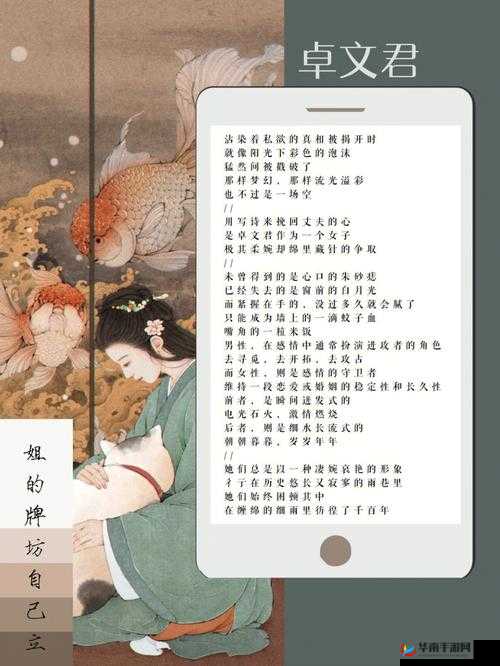 卓文君
沾染着私欲的真相被揭开时
就像阳光下彩色的泡沫
猛然间被戳破了
那样梦幻，那样流光溢彩
也不过是一场空
//
用写诗来挽回丈夫的心
是卓文君作为一个女子
极其柔婉却绵里藏针的争取
//
未曾得到的是心口的朱砂痣
已经失去的是窗前的白月光
而紧握在手的，没过多久就会腻了
只能成为墙上的一滴蚊子血
嘴角的一粒米饭
男性，在感情中通常扮演进攻者的角色
去寻觅，去开拓，去攻占
而女性，则是感情的守卫者
维持一段恋爱或婚姻的稳定性和长久性
前者，是瞬间迸发式的
电光石火，激情燃烧
后者，则是细水长流式的
朝朝暮暮，岁岁年年
//
她们总是以一种凄婉哀艳的形象
彳亍在历史悠长又寂寥的雨巷里
她们始终困顿其中
在缠绵的细雨里彷徨了千百年
姐的牌坊自己立
华南手游网